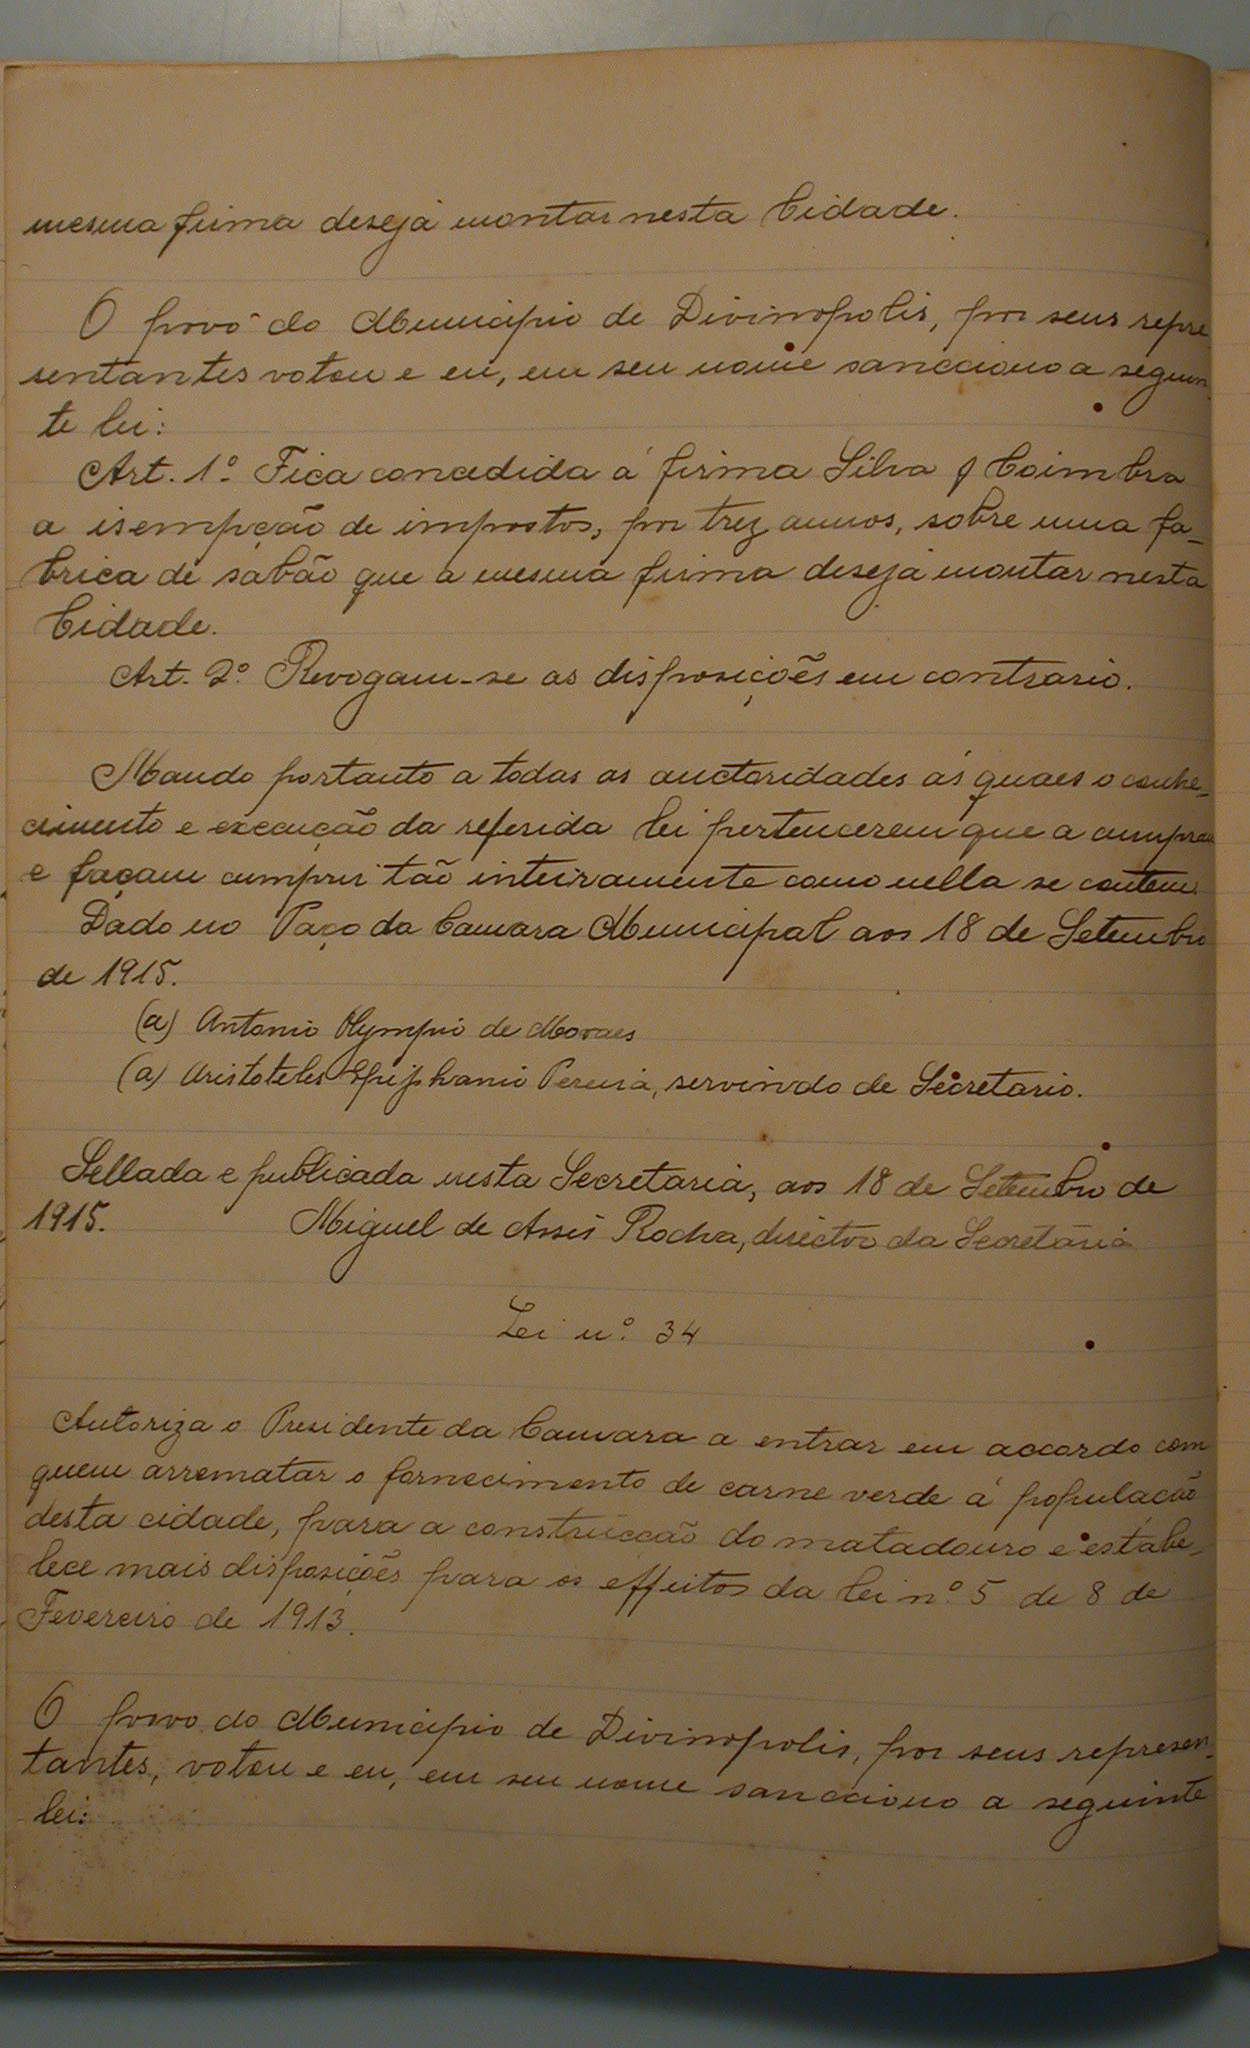 mesma firma deseja montar nesta Cidade.
O povo do Municipio de Divinopolis, por seus repre
sentantes votou e eu, em seu nome sancciono a seguin
te lei:
Art. 1º. Fica concedida á firma Silva & Coimbra
a isempção de impostos, por trez annos, sobre uma fa-
brica de sabão que a mesma firma deseja montar nesta
Cidade.
Art. 2º. Revogam-se as disposições em contrario.
Mando portanto a todas as auctoridades ás quaes o conhe-
cimento e execução da referida lei pertencerem que a cumpram
e façam cumprir tão inteiramente como nella se contem.
Dado no Paço da Camara Municipal aos 18 de Setembro
de 1915.
(a) Antonio Olympio de Moraes
(a) Aristoteles Epiphanio Pereira, servindo de Secretario.
Sellada e publicada nesta Secretaria, aos 18 de Setembro de
1915. Miguel de Assis Rocha, director da Secretaria
Lei nº. 34
Autoriza o Presidente da Camara a entrar em accordo com
quem arrematar o fornecimento de carne verde á população
desta cidade, para a construcção do matadouro e estabe-
lece mais disposições para os effeitos da lei nº 5 de 8 de
Fevereiro de 1913.
O povo do Municipio de Divinopolis, por seus represen-
tantes, votou e eu, em seu nome sancciono a seguinte
lei: